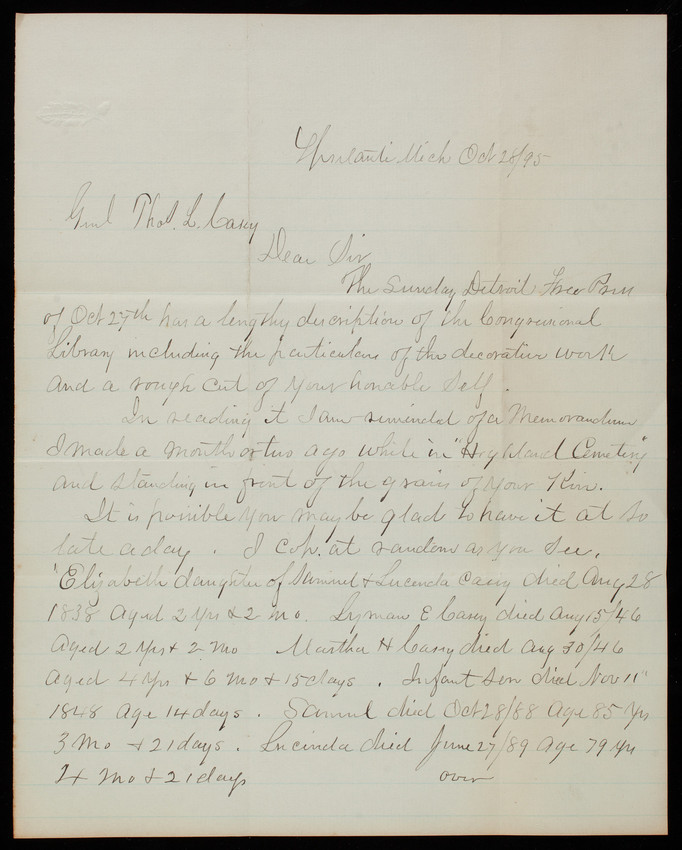 Ypsilanti Mich Oct 28/95
Genl Thos. L. Casey
Dear Sir
The Sunday Detroit Free Press
of Oct 27th has a lengthy description of the Congressional
Library including the particulars of the decorative work
and a rough cut of your honable self.
In reading it I am reminded of a Memorandum
I made a month or two ago while in "Highland Cemetery"
and standing in front of the graves of your Kin.
It is possible you may be glad to have it at so
late a day. I copy at random as you see.
"Elizabeth daughter of Samuel & Lucinda Casey died Aug 28
1838 aged 2 yrs & 2 mo. Lyman E Casey died Aug 15/46
aged 2 yrs & 2 mo Martha H Casey died Aug 30/46
aged 4 yrs & 6 mo & 15 days. Infant son died Nov 11"
1848 age 14 days. Samuel died Oct 28/88 age 85 yrs
3 mo & 21 days. Lucinda died June 27/89 age 79 yrs
4 mo & 21 days over